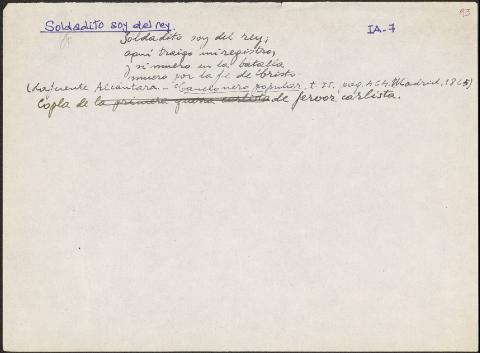 93
Soldadito soy del rey. IA-7
Soldadito soy del rey;
aquí traigo mi registro,
y si muero en la batalla
muero por la fe de Cristo.
(Lafuente Alcántara.- "Cancionero popular, t. II, pág. 464. Madrid, 1865)
Copla de la primera guerra carlista de fervor carlista.